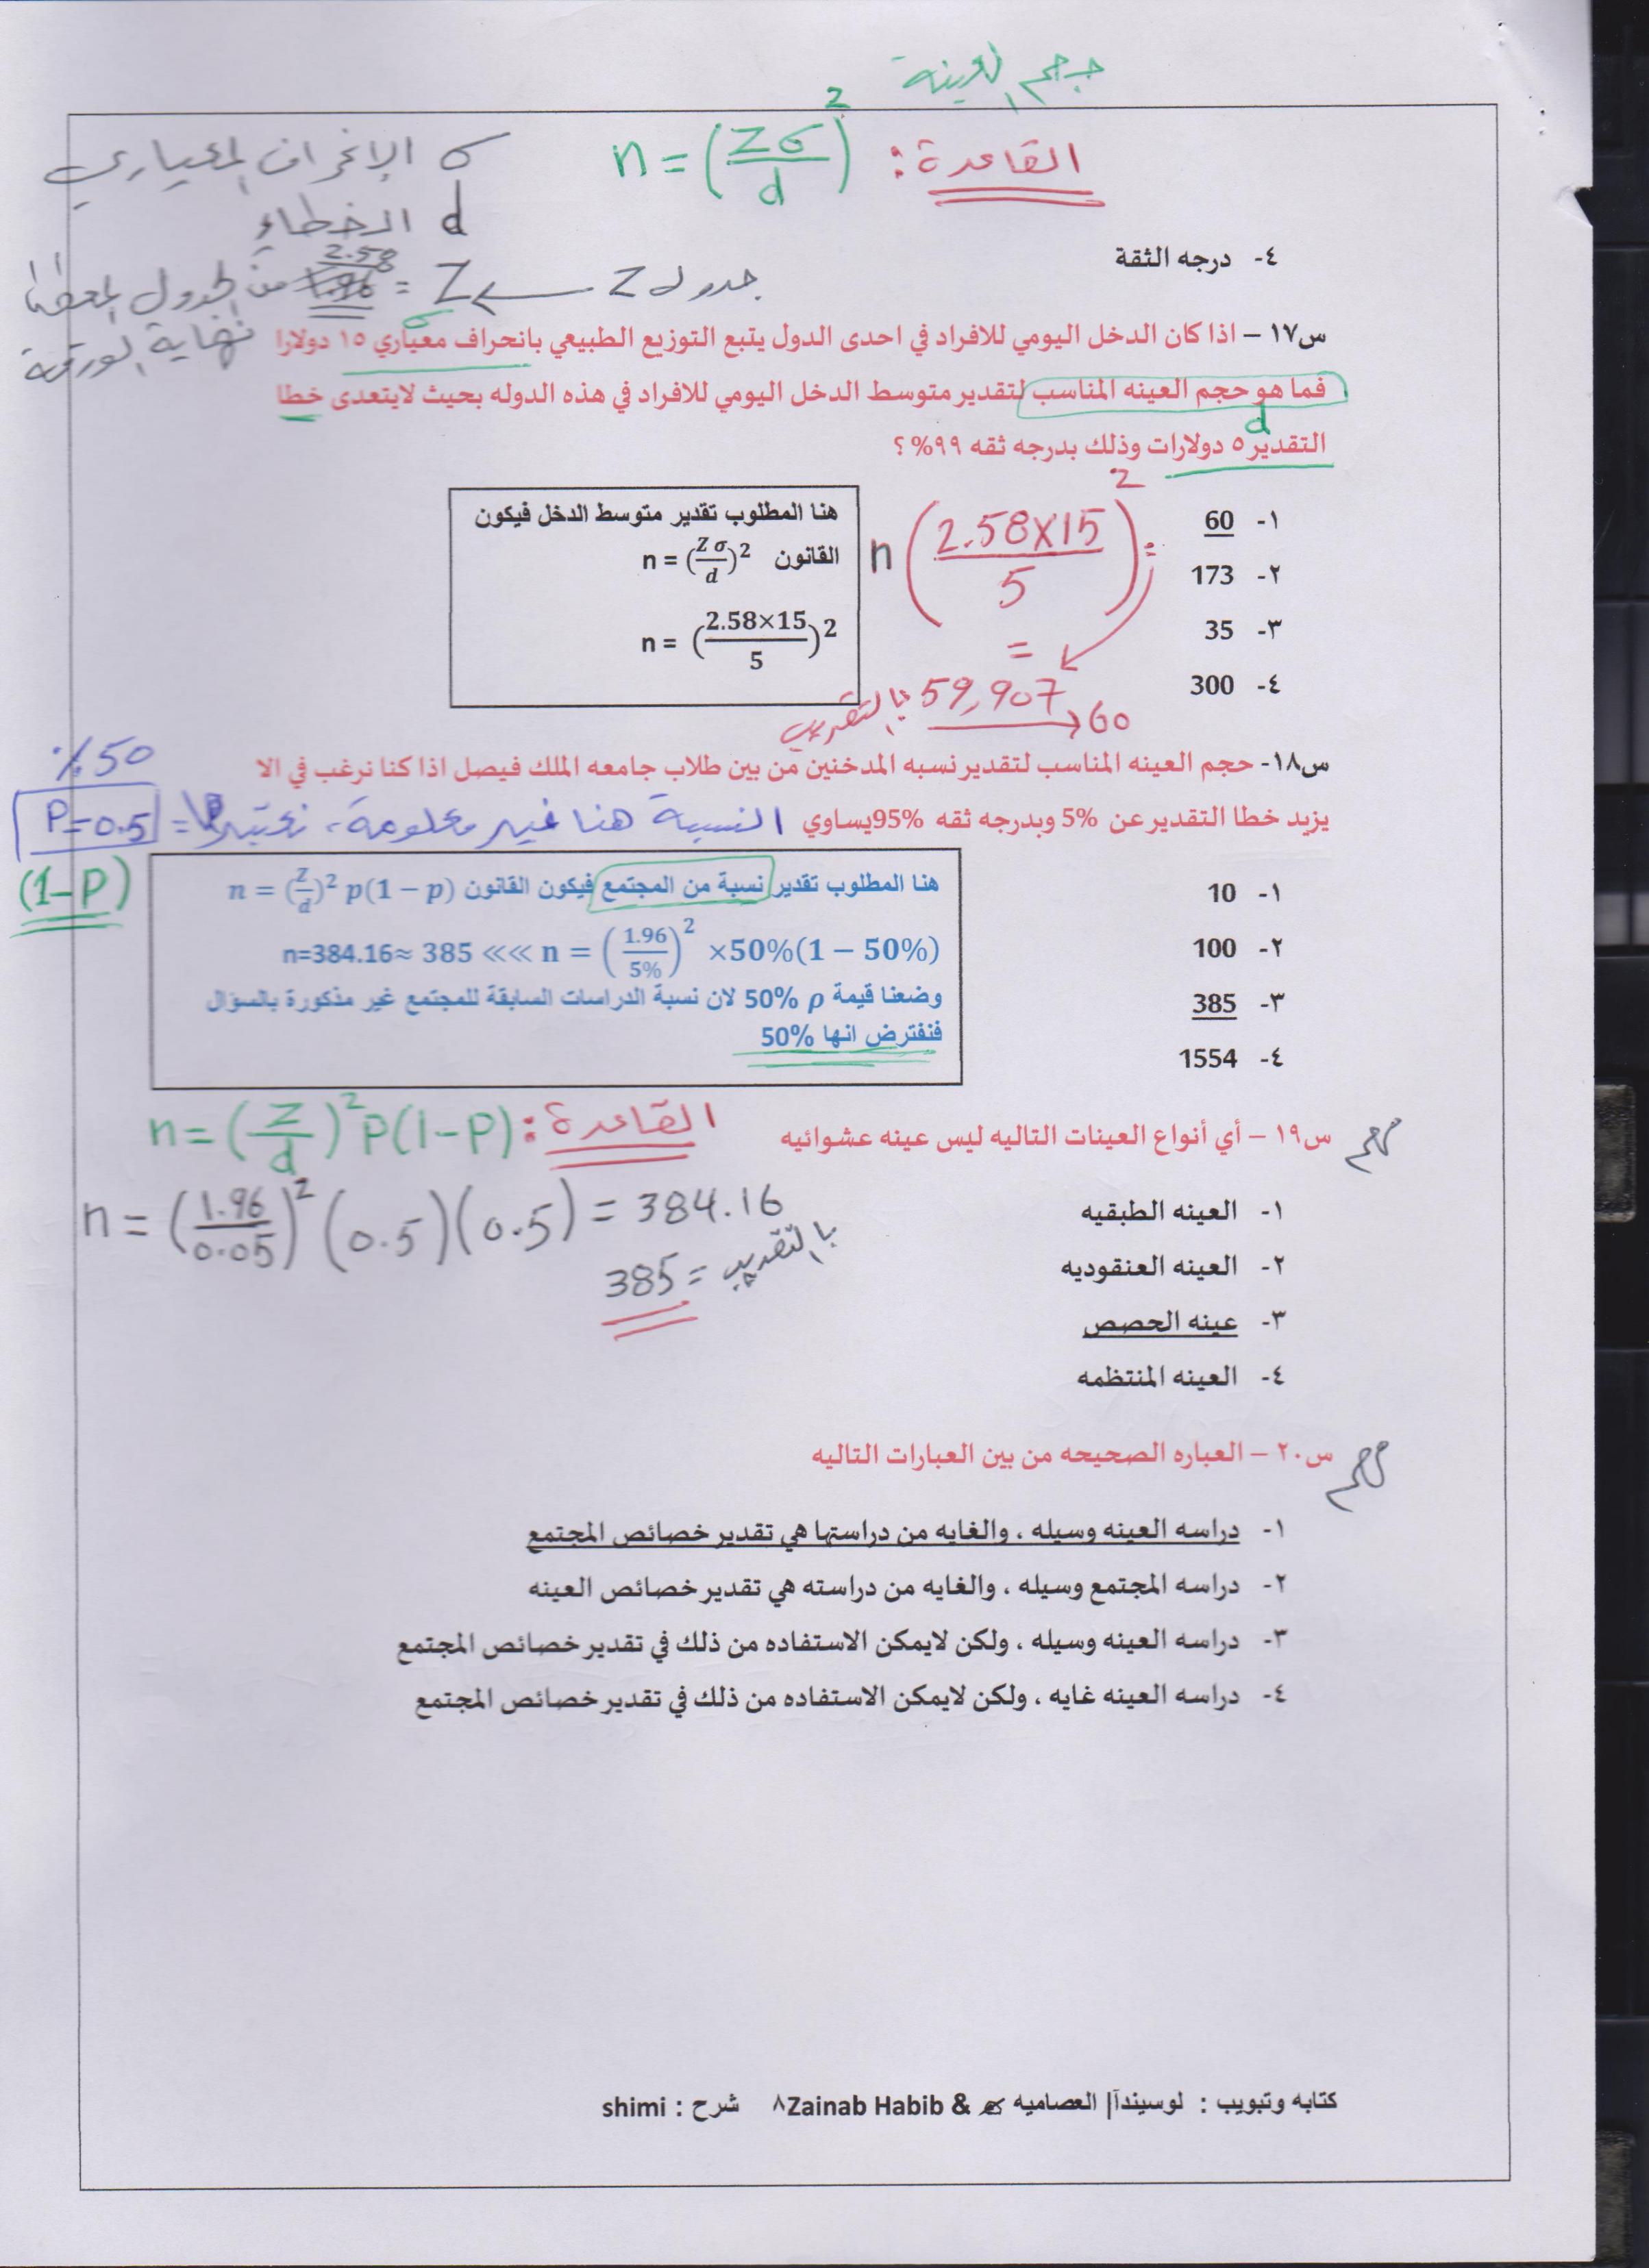 حجم العينة
القاعدة : n = (Zσ/d)²
σ الإنحراف المعياري
d الخطاء
جدول Z ← Z = 1.96 2.58 من الجدول المعطى
نهاية الورقة
٤- درجه الثقة
س١٧ – اذا كان الدخل اليومي للافراد في احدى الدول يتبع التوزيع الطبيعي بانحراف معياري ١٥ دولارا
σ
فما هو حجم العينه المناسب لتقدير متوسط الدخل اليومي للافراد في هذه الدوله بحيث لايتعدى خطا
d
التقدير ٥ دولارات وذلك بدرجه ثقه ٩٩%؟
١- 60
٢- 173
٣- 35
٤- 300
n (2.58×15/5)² =
= 59,907 بالتقريب → 60
هنا المطلوب تقدير متوسط الدخل فيكون
القانون n = (Zσ/d)²
n = (2.58×15/5)²
س١٨- حجم العينه المناسب لتقدير نسبه المدخنين من بين طلاب جامعه الملك فيصل اذا كنا نرغب في الا
يزيد خطا التقدير عن 5% وبدرجه ثقه 95% يساوي
النسبة هنا غير معلومة، نعتبرها = P=0.5
%50
(1-P)
١- 10
٢- 100
٣- 385
٤- 1554
هنا المطلوب تقدير نسبة من المجتمع فيكون القانون n = (Z/d)² p(1 − p)
n=384.16≈ 385 <<< n = (1.96/5%)² ×50%(1 − 50%)
وضعنا قيمة ρ 50% لان نسبة الدراسات السابقة للمجتمع غير مذكورة بالسؤال
فنفترض انها 50%
القاعدة : n = (Z/d)² P(1-P)
n = (1.96/0.05)² (0.5)(0.5) = 384.16
بالتقريب = 385
مهم
س١٩ – أي أنواع العينات التاليه ليس عينه عشوائيه
١- العينه الطبقيه
٢- العينه العنقوديه
٣- عينه الحصص
٤- العينه المنتظمه
مهم
س٢٠ – العباره الصحيحه من بين العبارات التاليه
١- دراسه العينه وسيله ، والغايه من دراستها هي تقدير خصائص المجتمع
٢- دراسه المجتمع وسيله ، والغايه من دراسته هي تقدير خصائص العينه
٣- دراسه العينه وسيله ، ولكن لايمكن الاستفاده من ذلك في تقدير خصائص المجتمع
٤- دراسه العينه غايه ، ولكن لايمكن الاستفاده من ذلك في تقدير خصائص المجتمع
كتابه وتبويب : لوسيندآ| العصاميه & Zainab Habib ٨ شرح : shimi